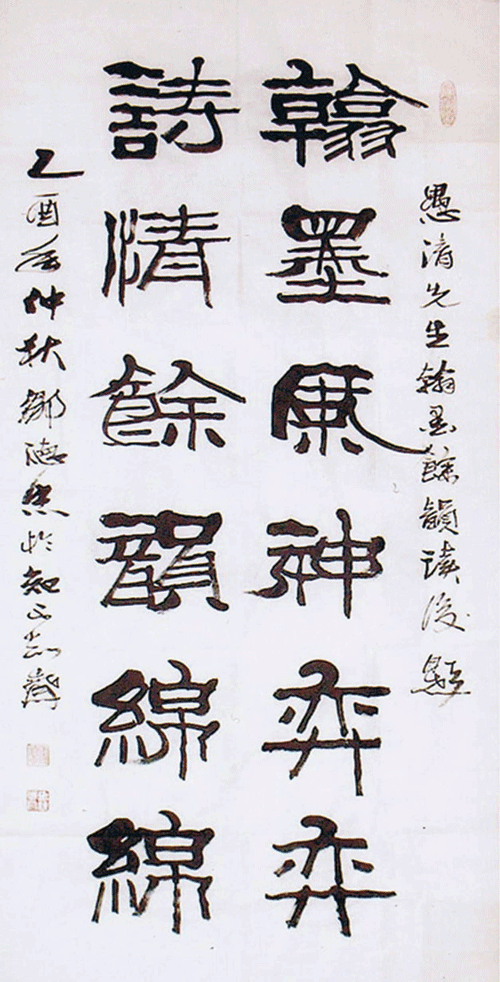 愚清先生翰墨餘韻讀後題
翰墨風神弈弈
詩清餘韻綿綿
乙酉年仲秋鄒德忠於知不齋